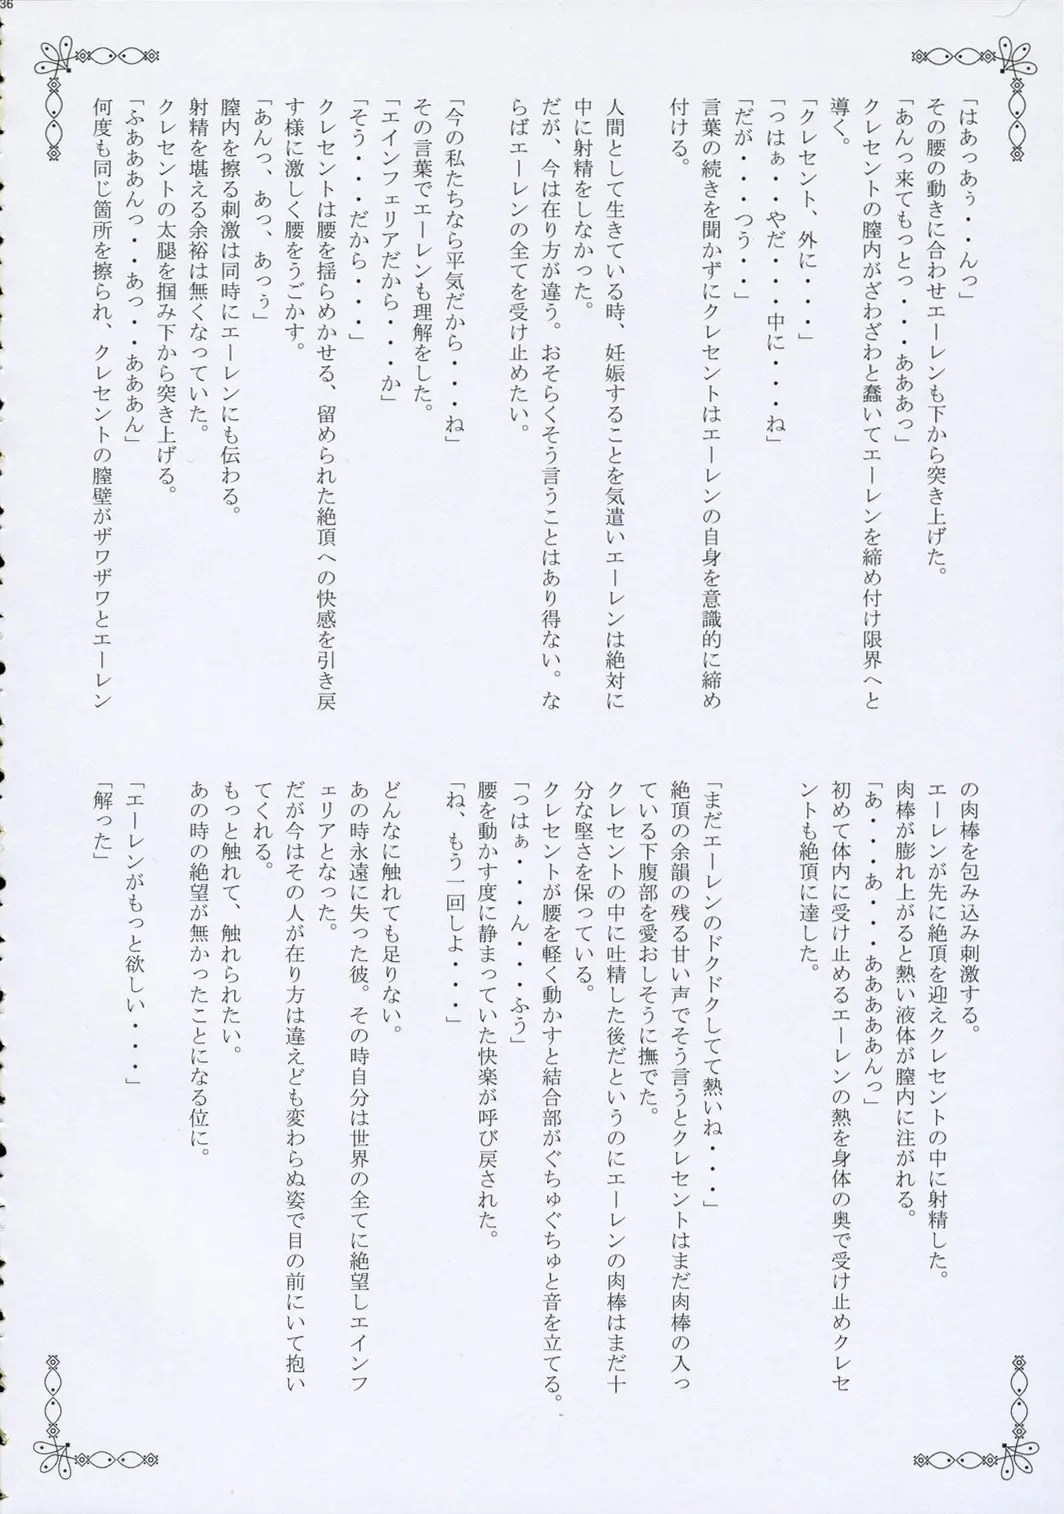 36
「はあっあぅ・・んっ」
その腰の動きに合わせエーレンも下から突き上げた。
「あんっ来てもっとっ・・・あああっ」
クレセントの膣内がざわざわと蠢いてエーレンを締め付け限界へと
導く。
「クレセント、外に・・・」
「っはぁ・・やだ・・・中に・・・ね」
「だが・・・つう・・」
言葉の続きを聞かずにクレセントはエーレンの自身を意識的に締め
付ける。
人間として生きている時、妊娠することを気遣いエーレンは絶対に
中に射精をしなかった。
だが、今は在り方が違う。おそらくそう言うことはあり得ない。な
らばエーレンの全てを受け止めたい。
「今の私たちなら平気だから・・・ね」
その言葉でエーレンも理解をした。
「エインフェリアだから・・・か」
「そう・・・だから・・・」
クレセントは腰を揺らめかせる、留められた絶頂への快感を引き戻
す様に激しく腰をうごかす。
「あんっ、あっ、あっぅ」
膣内を擦る刺激は同時にエーレンにも伝わる。
射精を堪える余裕は無くなっていた。
クレセントの太腿を掴み下から突き上げる。
「ふあああんっ・・・あっ・・あああん」
何度も同じ箇所を擦られ、クレセントの膣壁がザワザワとエーレン
の肉棒を包み込み刺激する。
エーレンが先に絶頂を迎えクレセントの中に射精した。
肉棒が膨れ上がると熱い液体が膣内に注がれる。
「あ・・・あ・・・あああああんっ」
初めて体内に受け止めるエーレンの熱を身体の奥で受け止めクレセ
ントも絶頂に達した。
「まだエーレンのドクドクしてて熱いね・・・」
絶頂の余韻の残る甘い声でそう言うとクレセントはまだ肉棒の入っ
ている下腹部を愛おしそうに撫でた。
クレセントの中に吐精した後だというのにエーレンの肉棒はまだ十
分な堅さを保っている。
クレセントが腰を軽く動かすと結合部がぐちゅぐちゅと音を立てる。
「っはぁ・・・ん・・・ふう」
腰を動かす度に静まっていた快楽が呼び戻された。
「ね、もう一回しよ・・・」
どんなに触れても足りない。
あの時永遠に失った彼。その時自分は世界の全てに絶望しエインフ
ェリアとなった。
だが今はその人が在り方は違えども変わらぬ姿で目の前にいて抱い
てくれる。
もっと触れて、触れられたい。
あの時の絶望が無かったことになる位に。
「エーレンがもっと欲しい・・・」
「解った」